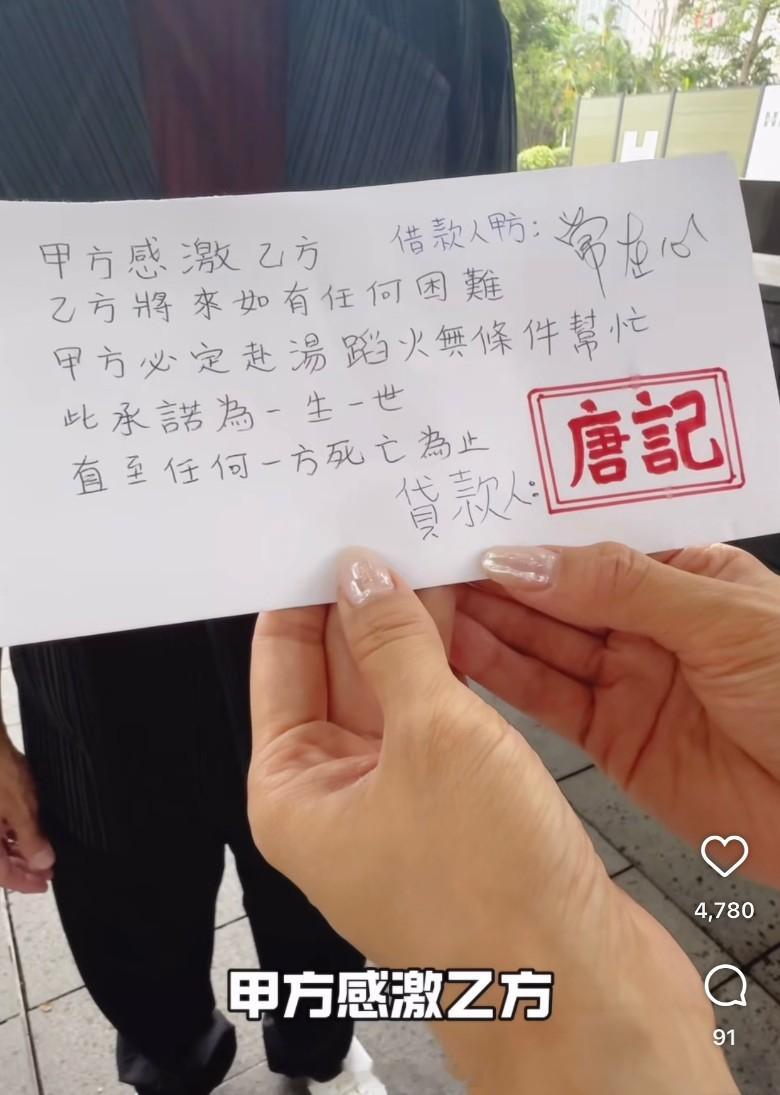 甲方感激乙方
借款人甲方：常在心
乙方將來如有任何困難
甲方必定赴湯蹈火無條件幫忙
此承諾為一生一世
直至任何一方死亡為止
貸款人：
唐記
甲方感激乙方
4,780
91